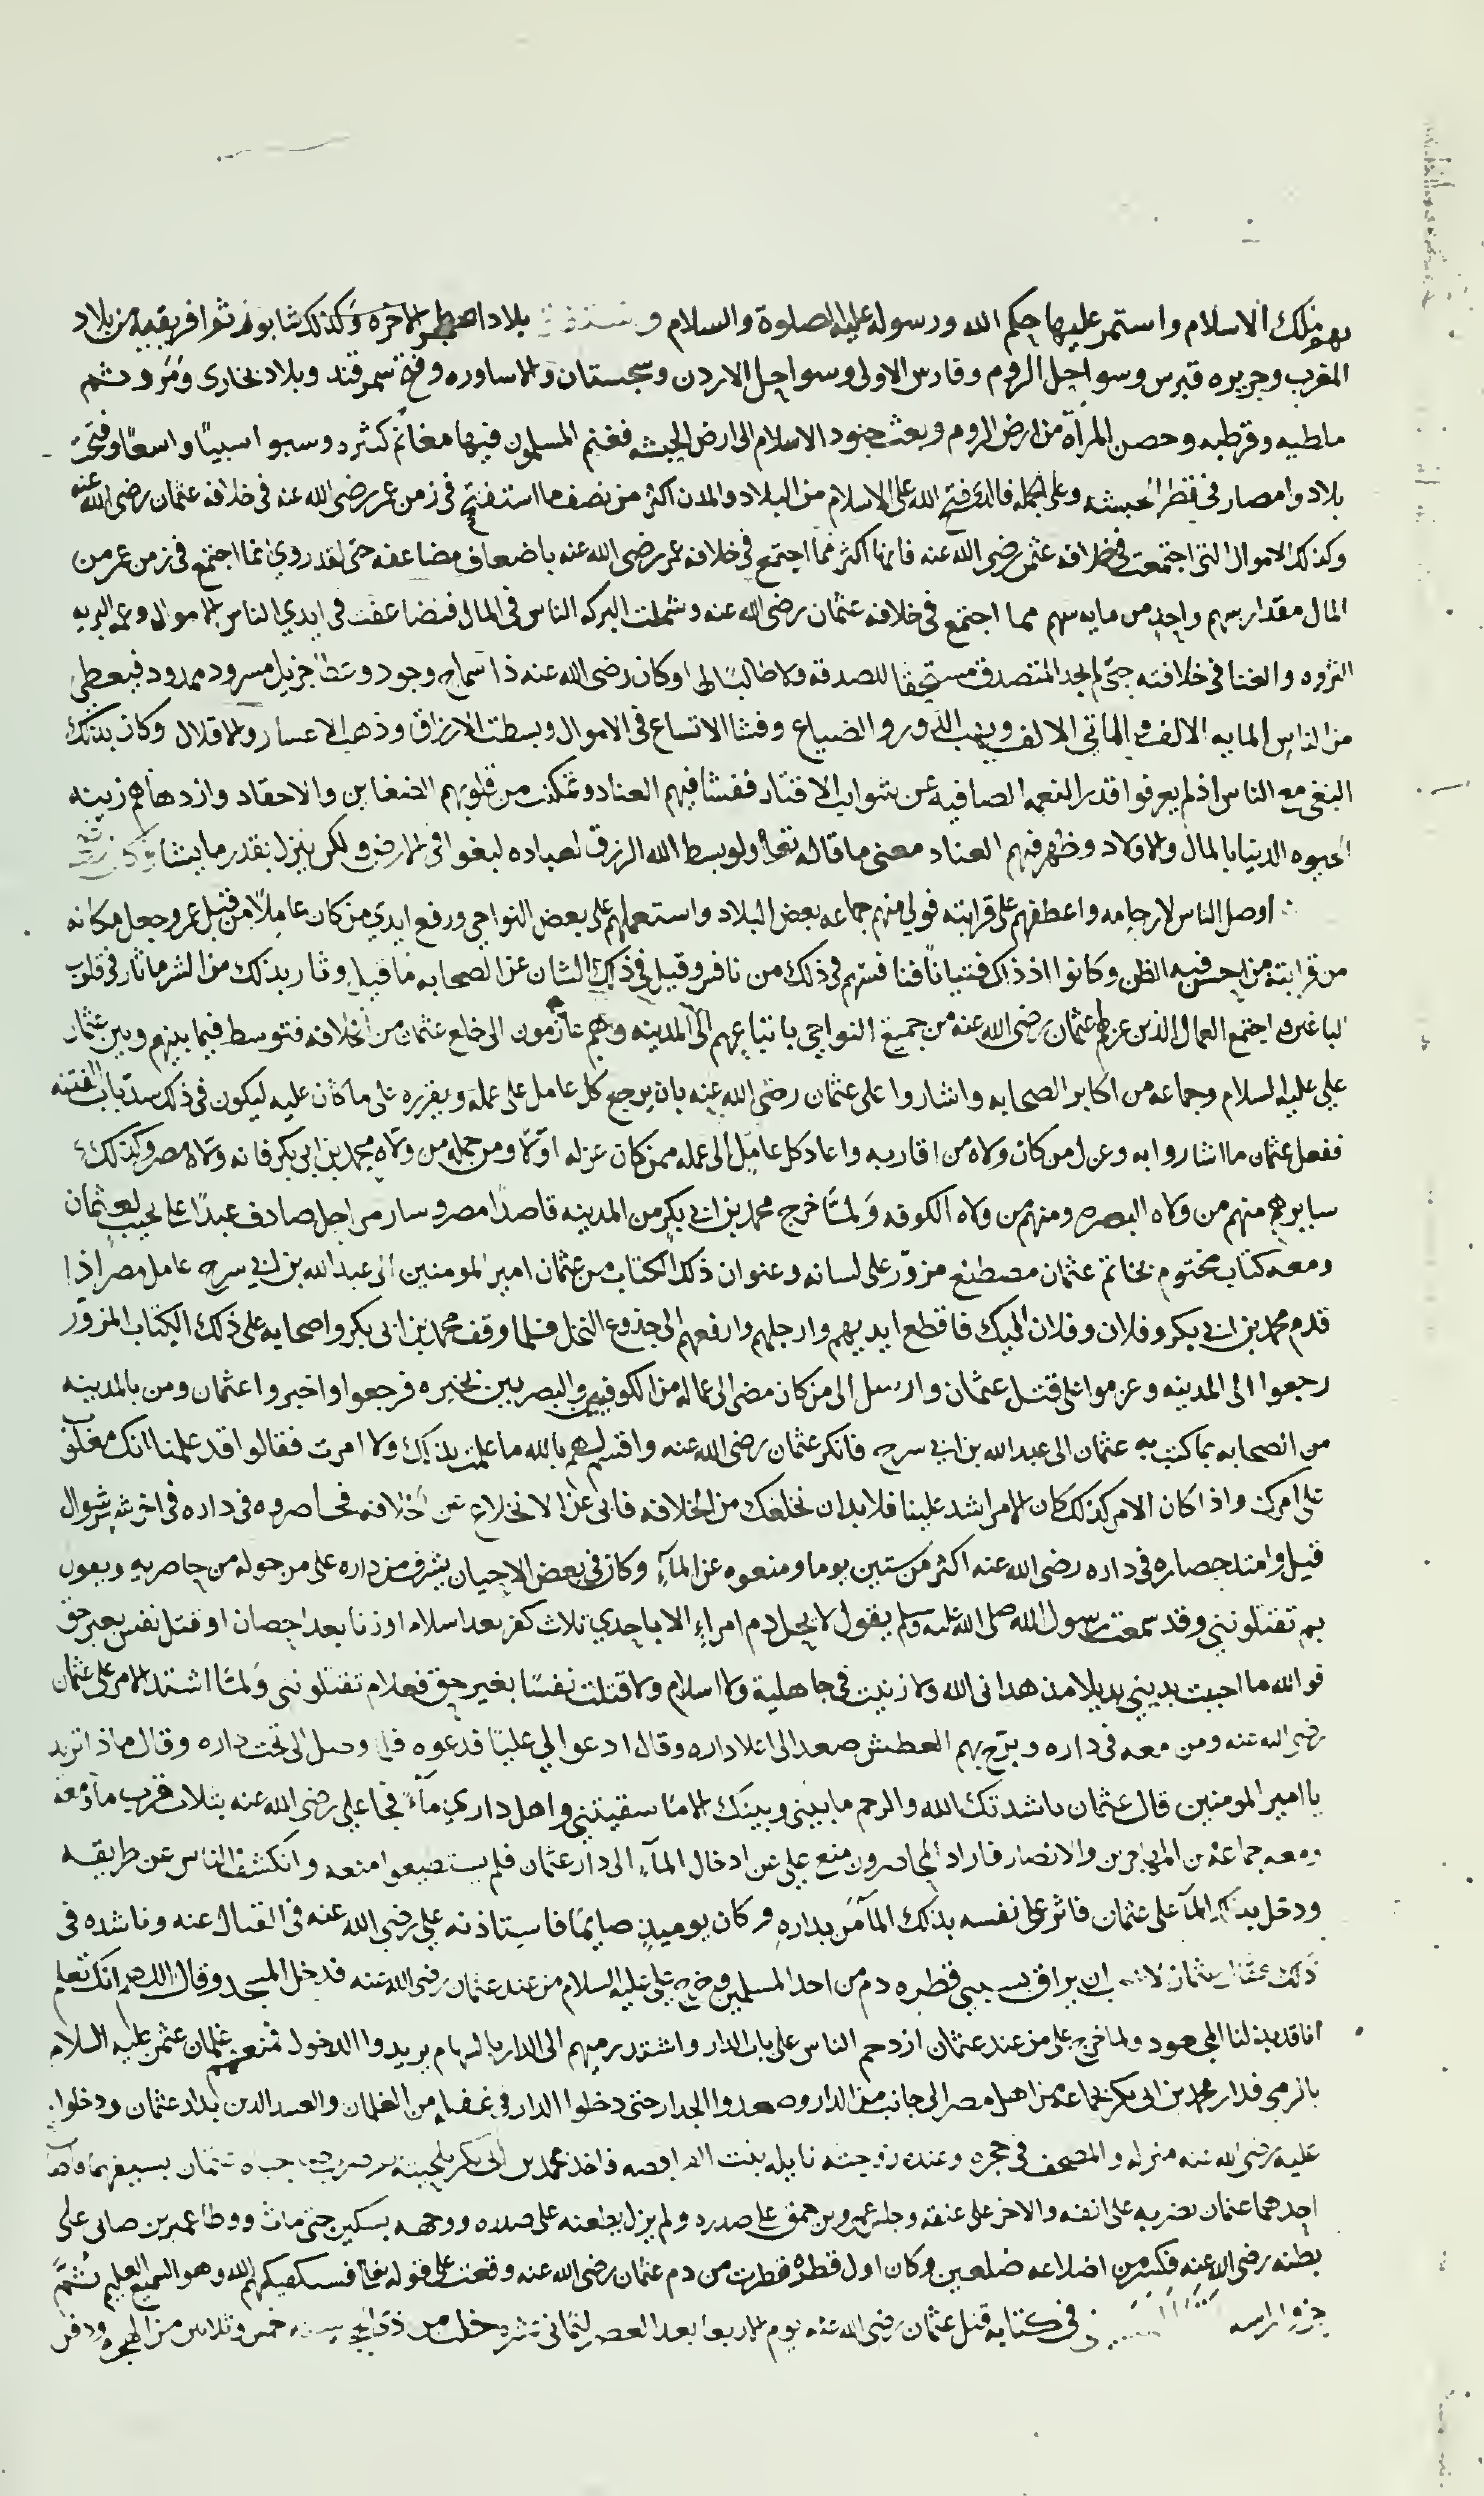 بهم ملك الاسلام واستمر عليها حكم الله ورسوله عليه الصلوة والسلام و بلاد اصطخر الاخره وكذلك شابور ثم افريقيه من بلاد
المغرب وجزيره قبرس وسواحل الروم وفارس الاولى وسواحل الاردن وسجستان والاساوره وفتح سمرقند وبلاد بخارى ومرو ثم
ملطيه وقرطبه وحصن المرأة من ارض الروم وبعث جنود الاسلام الى ارض الحبشه فغنم المسلمون فيها مغانم كثيره وسبوا سبيًا واسعًا وفتحت
بلاد وامصار في قطر الحبشه وعلى الجمله فالذي فتح الله على الاسلام من البلاد والمدن اكثر من نصف ما استفتح في زمن عمر رضى الله عنه في خلافه عثمان رضى الله عنه
وكذلك الاموال التي اجتمعت في خلافه عثمن رضي الله عنه فانها اكثر مما اجتمع في خلافه عمر رضى الله عنه باضعاف مضاعفه حتى لقد روي انما اجتمع في زمن عمر من
المال مقدار سهم واحد من مايه سهم مما اجتمع في خلافه عثمان رضى الله عنه وشملت البركه الناس في المال فتضاعفت في ايدي الناس الاموال وعم البريه
الثروه والغنا في خلافته حتى لم يجد المتصدق مستحقا للصدقه ولا طالبًا لها وكان رضى الله عنه ذا سماح وجود وعطا جزيل مسرود ممدود فيعطي
من الناس المايه الالف و الماتي الالف ويهب الدور والضياع وفشا الاتساع في الاموال وبسطت الارزاق وذهب الاعسار والاقلال وكان بذلك
البغي مع الناس اذ لم يعرفوا قدر النعمه الصافيه عن شوايب الاقتار ففشا فيهم العناد وتمكنت من قلوبهم الضغاين والاحقاد وازدهاهم زينه
الحيوه الدنيا بالمال والاولاد وظهر فيهم العناد معنى ما قاله تعا ولو بسط الله الرزق لعباده لبغوا في الارض ولكن ينزل بقدر ما يشا وكان
اوصل الناس لارحامه واعطفهم على قرابته فولي منهم جماعه بعض البلاد واستعملهم على بعض النواحي ورفع ايدي من كان عاملًا من قبل عمر وجعل مكانه
من قرابته من احسن فيه الظن وكانوا اذ ذاك فتيانًا فنافسهم في ذلك من نافس وقيل في ذلك الشان عن الصحابه ما قيل وثار بذلك من الشر ما ثار في قلوب
الباغين واجتمع العمال الذين عزلهم عثمان رضى الله عنه من جميع النواحي باتباعهم الى المدينه وهم عازمون الى خلع عثمان من الخلافه فتوسط فيما بينهم وبين عثمان
علي عليه السلام وجماعه من اكابر الصحابه واشاروا على عثمان رضى الله عنه بان يرجع كل عامل على عمله ويقرره على ما كان عليه ليكون في ذلك سد باب الفتنه
ففعل عثمان ما اشاروا به وعزل من كان ولاه من اقاربه واعاد كل عامل الى عمله ممن كان عزله اولًا ومن جمله من ولاه محمد بن ابي بكر فانه ولاه مصر وكذلك
سايرهم منهم من ولاه البصره ومنهم من ولاه الكوفه ولما خرج محمد بن ابي بكر من المدينه قاصدًا مصر وسار مراحل صادف عبدًا على نجيب لعثمان
ومعه كتاب مختوم بخاتم عثمان مصطنع مزور على لسانه وعنوان ذلك الكتاب من عثمان امير المومنين الى عبد الله بن ابي سرح عامل مصر اذا
قدم محمد بن ابي بكر وفلان وفلان اليك فاقطع ايديهم وارجلهم وارفعهم الى جذوع النخل فلما وقف محمد بن ابي بكر واصحابه على ذلك الكتاب المزور
رجعوا الى المدينه وعزموا على قتل عثمان وارسل الى من كان مضى الى عماله من الكوفيين والبصريين بخبره فرجعوا واخبروا عثمان ومن بالمدينه
من الصحابه بما كتب به عثمان الى عبد الله بن ابي سرح فانكر عثمان رضى الله عنه واقسم لهم بالله ما علمت بذلك ولا امرت فقالوا قد علمنا انك مغلوب
على امرك واذا كان الامر كذلك كان الامر اشد علينا فلا بد ان نخلعك من الخلافه فابى عن الانخلاع عن الخلافه فحاصروه في داره في اخر شهر شوال
قيل وامتد حصاره في داره رضى الله عنه اكثر من ستين يوما ومنعوه عن الماء وكان في بعض الاحيان يشرف من داره على من حوله من حاصريه ويقول
بم تقتلونني وقد سمعت رسول الله صلى الله عليه وسلم يقول لا يحل دم امراء الا باحدي ثلاث كفر بعد اسلام او زنا بعد احصان او قتل نفس بغير حق
فوالله ما احببت بديني بديلا مذ هداني الله ولا زنيت في جاهلية ولا اسلام ولا قتلت نفسًا بغير حق فعلام تقتلونني ولما اشتد الامر على عثمان
رضي الله عنه ومن معه في داره وبرّح بهم العطش صعد الى اعلا داره وقال ادعوا لي عليًا فدعوه فلما وصل الى تحت داره وقال ماذا تريد
يا امير المومنين قال عثمان ناشدتك الله والرحم ما بيني وبينك الا ما سقيتني واهل داري ماءً فجا علي رضى الله عنه بثلاث قرب ماء معه
ومعه جماعه من المهاجرين والانصار فاراد المحاصرون منع علي عن ادخال الماء الى دار عثمان فلم يستطيعوا منعه وانكشف الناس عن طريقه
ودخل بذلك الماء على عثمان فاثر على نفسه بذلك الماء من بداره وكان يوميذٍ صايمًا فاستاذنه علي رضي الله عنه في القتال عنه وناشده في
ذلك فقال عثمان لا احب ان يراق بسببي قطره دم من احد المسلمين وخرج علي عليه السلام من عند عثمان رضى الله عنه فدخل المسجد وقال اللهم انك تعلم
انا قد بذلنا المجهود ولما خرج علي من عند عثمان ازدحم الناس على باب الدار واشتد رميهم الى الدار بالسهام يريدوا الدخول فمنعهم غلمان عثمن عليه السلام
بالرمي فدار محمد بن ابي بكر بجماعه من اهل مصر الى جانب من الدار وصعدوا الجدار حتى دخلوا الدار في غفله من الغلمان والعبيد الذين بدار عثمان ودخلوا
عليه رضى الله عنه منزله والمصحف في حجره وعنده زوجته نايله بنت الفرافصه فاخذ محمد بن ابي بكر بلحيته عثمان بسيفهما
احدهما عثمان بضربه على انفه والاخر على عنقه وجلس عمرو بن حمق على صدره ولم يزل يطعنه على صدره ووجهه بسكين حتى مات ووطا عمير بن صابي على
بطنه رضى الله عنه فكسر من اضلاعه ضلعين وكان اول قطره قطرت من دم عثمان رضى الله عنه وقعت على قوله تعا فسيكفيكهم الله وهو السميع العليم ثم
جزوا راسه في كتابه قتل عثمان رضي الله عنه يوم الاربعا بعد العصر لثماني عشر خلت من ذي الحجه سنه خمس وثلاثين من الهجره ودفن